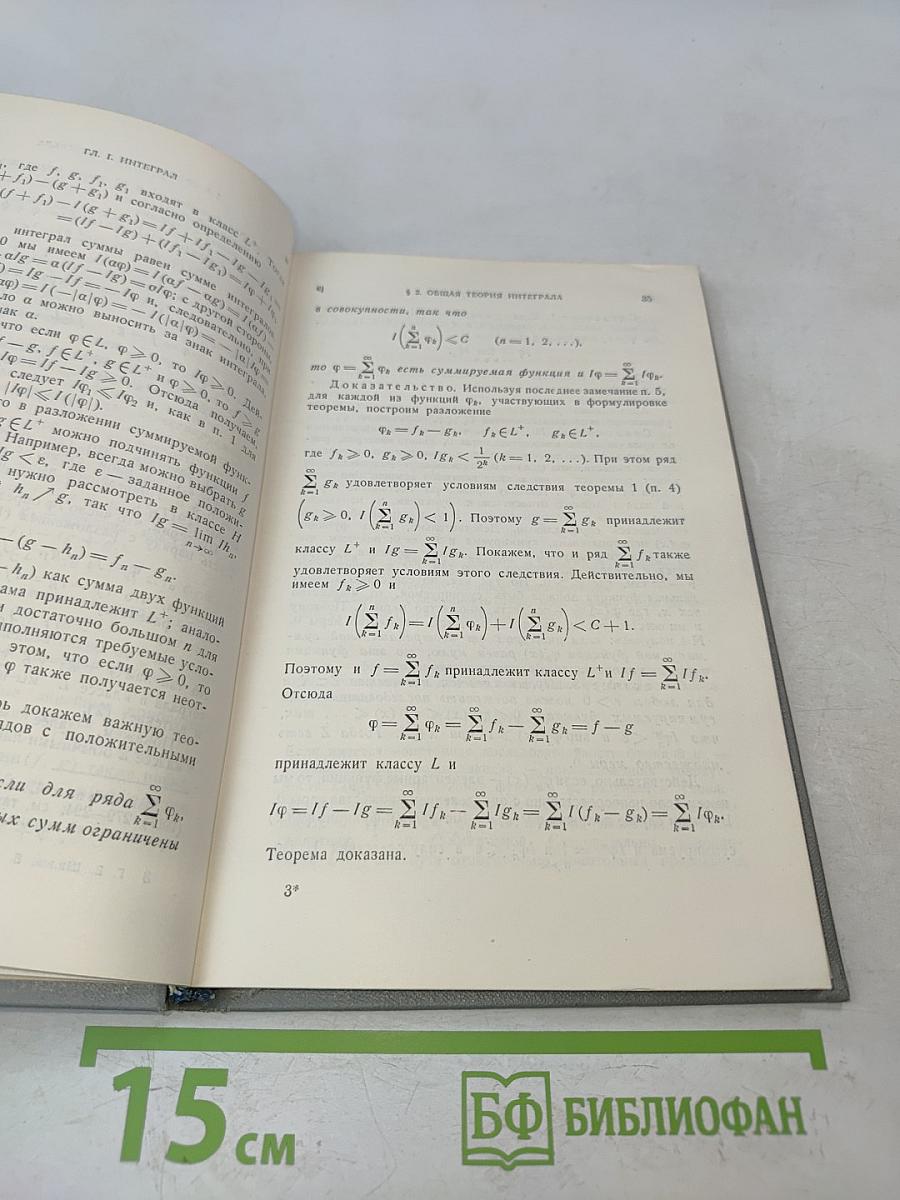 ГЛ. I. ИНТЕГРАЛ
где f, g, f₁, g₁ входят в класс L⁺. Тогда
+f₁)—(g+g₁) и согласно определению
(f+f₁)—I(g+g₁)=If+If₁—Ig—Ig₁=
=(If—Ig)+(If₁—Ig₁)=Iφ+Iφ₁,
интеграл суммы равен сумме интегралов.
0 мы имеем I(αφ)=I(αf—αg)=I(αf)—
αIg=α(If—Ig)=αIφ; с другой стороны,
)=Ig—If=—Iφ и, следовательно, при
αφ)=I(—|α|φ)=—I(|α|φ)=—|α|Iφ=
α можно выносить за знак интеграла.
α.
что если φ∈L, φ⩾0, то Iφ⩾0. Дей-
f—g, f∈L⁺, g∈L⁺ и φ⩾0, то f⩾g
Iφ=If—Ig⩾0. Отсюда получаем,
следует Iφ₁⩽Iφ₂ и, как в п. 1 для
|Iφ|⩽I(|φ|).
в разложении суммируемой функ-
g∈L⁺ можно подчинять функции f
Например, всегда можно выбрать g
Ig<ε, где ε — заданное положи-
нужно рассмотреть в классе H
hₙ↗g, так что Ig=lim Ihₙ,
n→∞
—(g—hₙ)=fₙ—gₙ.
—hₙ) как сумма двух функций
сама принадлежит L⁺; анало-
и достаточно большом n для
выполняются требуемые усло-
этом, что если φ⩾0, то
φ также получается неот-
докажем важную тео-
рядов с положительными
если для ряда ∑_{k=1}^{∞} φₖ,
сумм ограничены
§ 2. ОБЩАЯ ТЕОРИЯ ИНТЕГРАЛА 35
в совокупности, так что
I(∑_{k=1}^{n} φₖ)<C (n=1, 2, ...),
то φ=∑_{k=1}^{∞} φₖ есть суммируемая функция и Iφ=∑_{k=1}^{∞} Iφₖ.
Доказательство. Используя последнее замечание п. 5,
для каждой из функций φₖ, участвующих в формулировке
теоремы, построим разложение
φₖ=fₖ—gₖ, fₖ∈L⁺, gₖ∈L⁺,
где fₖ⩾0, gₖ⩾0, Igₖ<1/2ᵏ (k=1, 2, ...). При этом ряд
∑_{k=1}^{∞} gₖ удовлетворяет условиям следствия теоремы 1 (п. 4)
(gₖ⩾0, I(∑_{k=1}^{n} gₖ)<1). Поэтому g=∑_{k=1}^{∞} gₖ принадлежит
классу L⁺ и Ig=∑_{k=1}^{∞} Igₖ. Покажем, что и ряд ∑_{k=1}^{∞} fₖ также
удовлетворяет условиям этого следствия. Действительно, мы
имеем fₖ⩾0 и
I(∑_{k=1}^{n} fₖ)=I(∑_{k=1}^{n} φₖ)+I(∑_{k=1}^{n} gₖ)<C+1.
Поэтому и f=∑_{k=1}^{∞} fₖ принадлежит классу L⁺ и If=∑_{k=1}^{∞} Ifₖ.
Отсюда
φ=∑_{k=1}^{∞} φₖ=∑_{k=1}^{∞} fₖ—∑_{k=1}^{∞} gₖ=f—g
принадлежит классу L и
Iφ=If—Ig=∑_{k=1}^{∞} Ifₖ—∑_{k=1}^{∞} Igₖ=∑_{k=1}^{∞} I(fₖ—gₖ)=∑_{k=1}^{∞} Iφₖ.
Теорема доказана.
3*
15 см
БФ БИБЛИОФАН